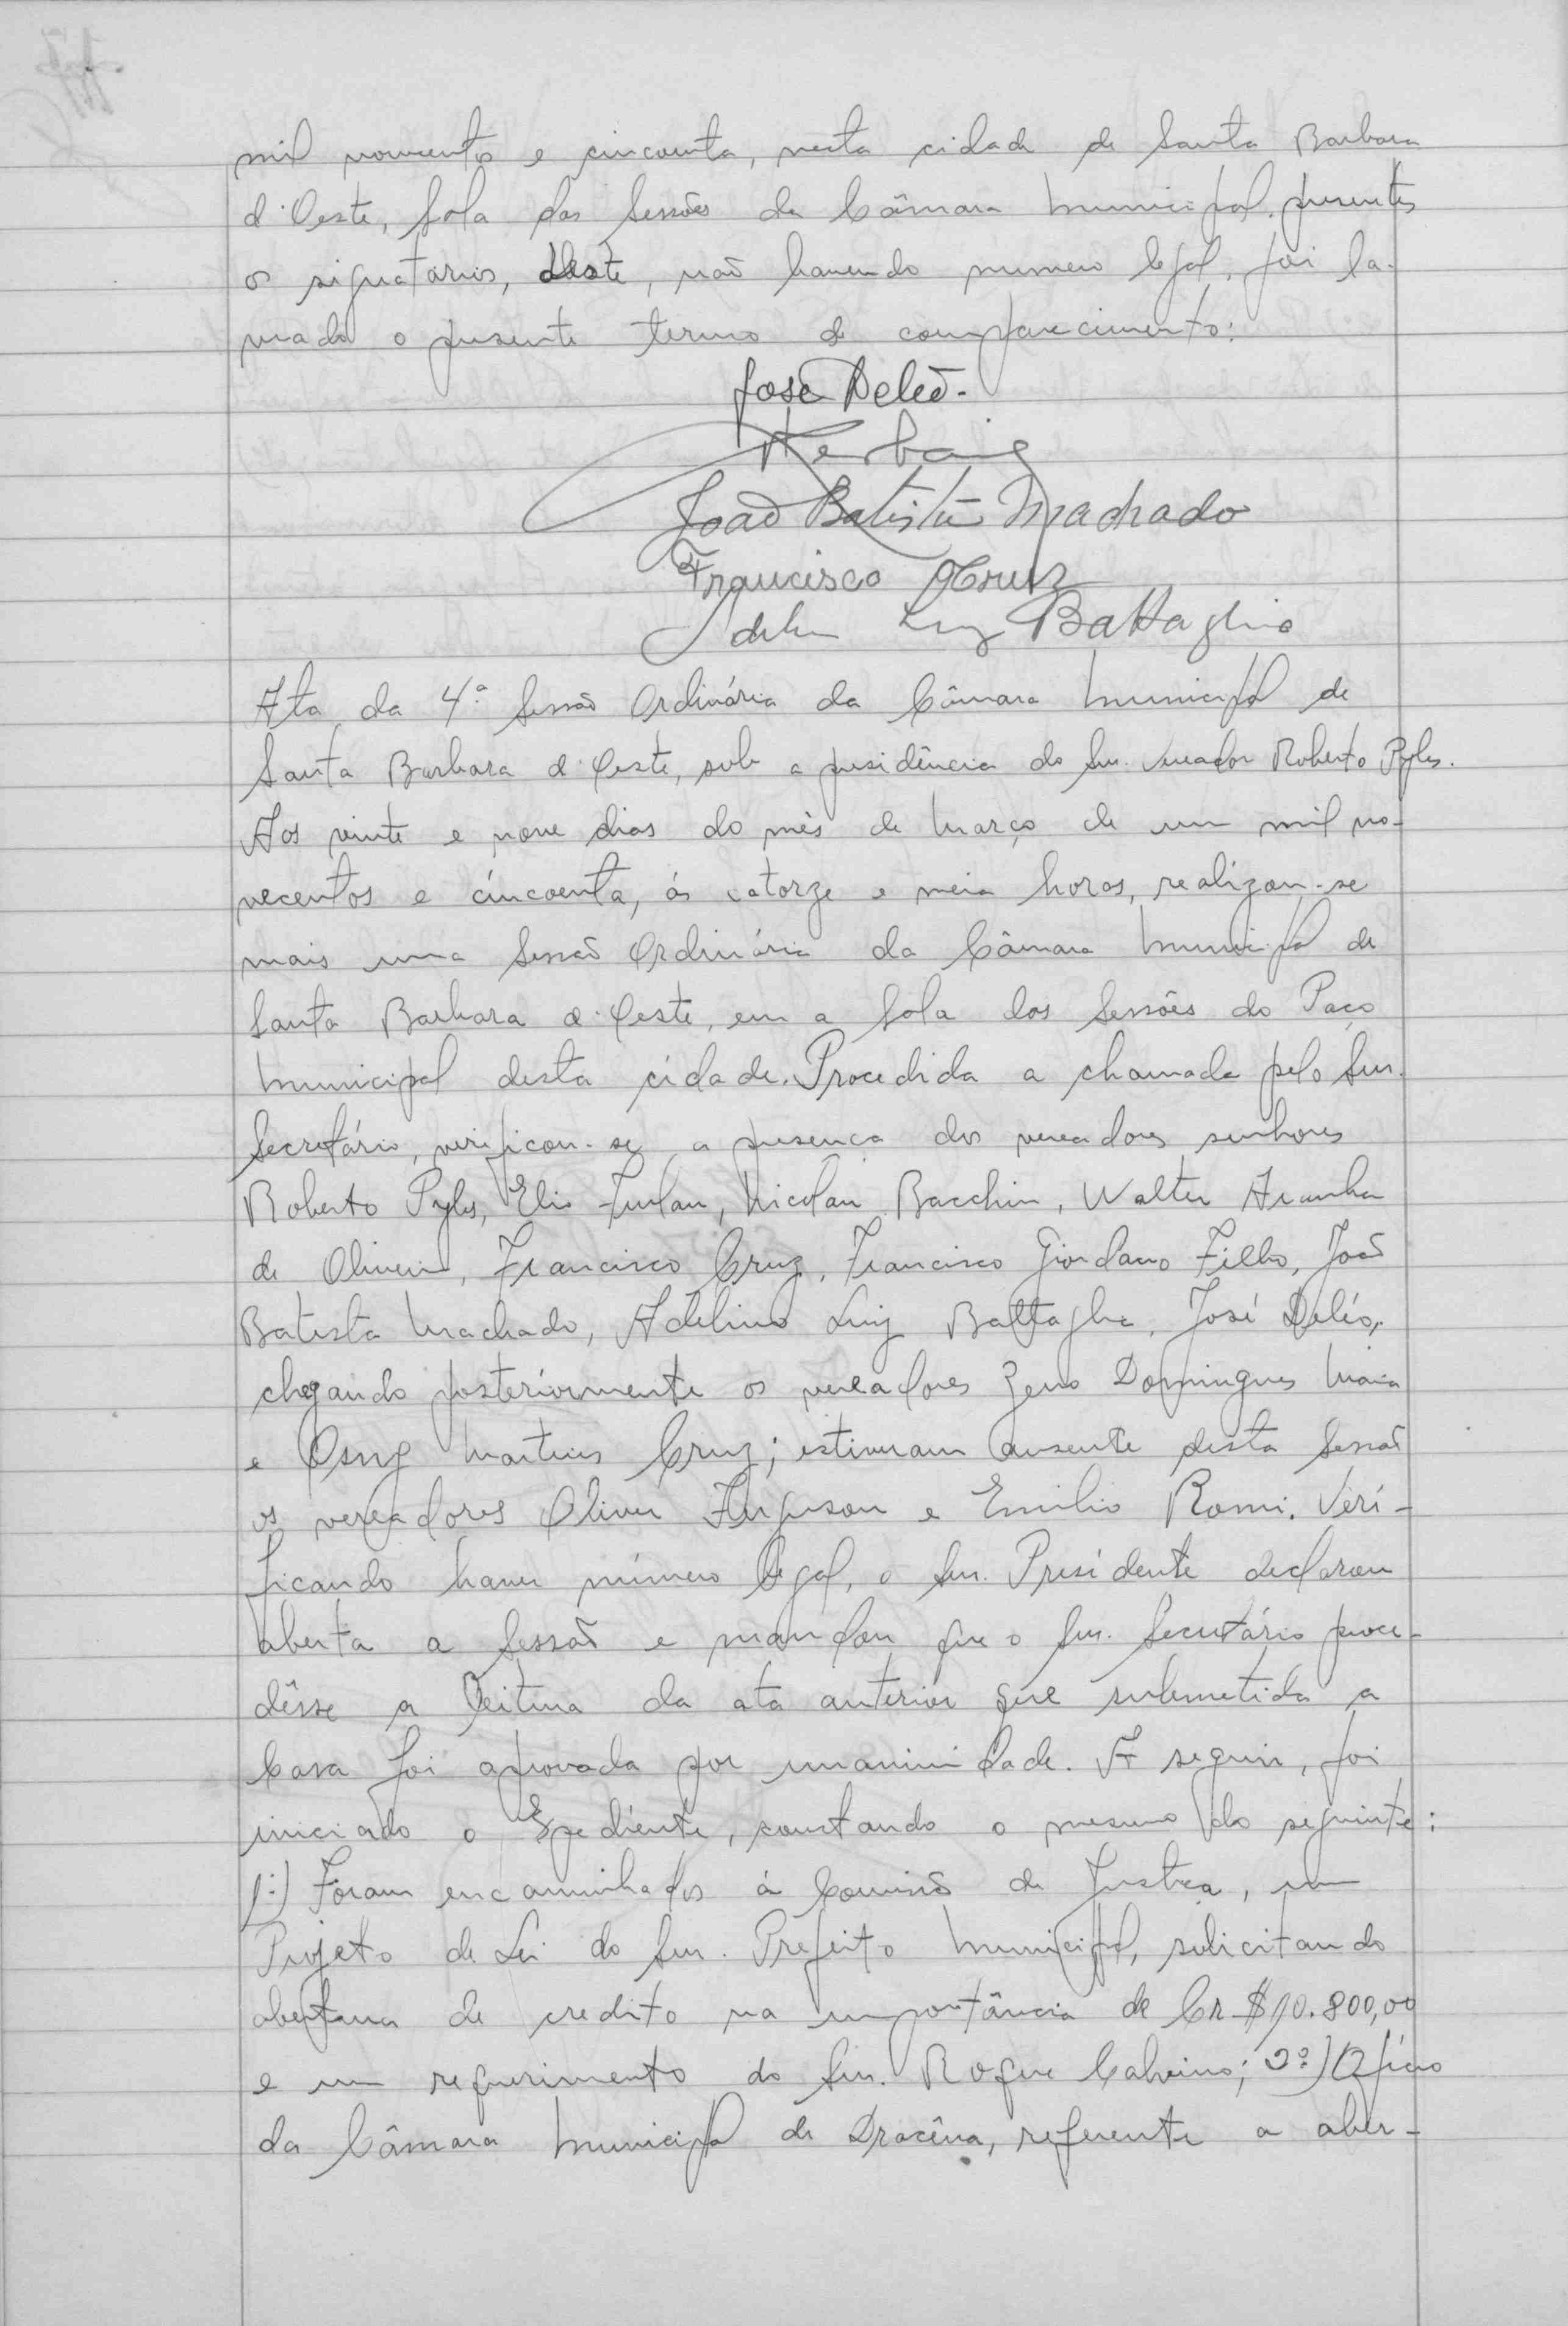 mil novecentos e cincoenta, nesta cidade de Santa Barbara
d'Oeste, Sala das Sessões da Câmara Municipal, presentes
os signatarios, deste, não havendo numero legal, foi la-
vrado o presente termo de comparecimento:
José Deleó.
João Batista Machado
Francisco Cruz
Adelino Luiz Battaglia
Ata da 4ª Sessão Ordinária da Câmara Municipal de
Santa Barbara d'Oeste, sob a presidência do Snr. Vereador Roberto Pyles.
Aos vinte e nove dias do mês de Março de um mil no-
vecentos e cincoenta, ás catorze e meia horas, realizou-se
mais uma Sessão Ordinária da Câmara Municipal de
Santa Barbara d'Oeste, em a Sala das Sessões do Paço
Municipal desta cidade. Procedida a chamada pelo Snr.
Secretário, verificou-se a presença dos vereadores senhores
Roberto Pyles, Elis Furlan, Nicolau Bacchin, Walter Aranha
de Oliveira, Francisco Cruz, Francisco Giordano Filho, João
Batista Machado, Adelino Luiz Battaglia, José Deléo,
chegando posteriormente os vereadores Zeno Domingues Maia
e Osny Martins Cruz; estiveram ausente desta Sessão
os vereadores Oliver Ferguson e Emilio Romi. Veri-
ficando haver número legal, o Snr. Presidente declarou
aberta a Sessão e mandou que o Snr. Secretário proce-
dêsse a leitura da ata anterior que submetida a
Casa foi aprovada por unanimidade. A seguir, foi
iniciado o Expediente, constando o mesmo do seguinte:
1º) Foram encaminhados á Comissão de Justiça, um
Projeto de Lei do Snr. Prefeito Municipal, solicitando
abertura de credito na importância de Cr.$10.800,00
e um requerimento do Snr. Roque Calvino; 2º) Ofício
da Câmara Municipal de Dracêna, referente a aber-